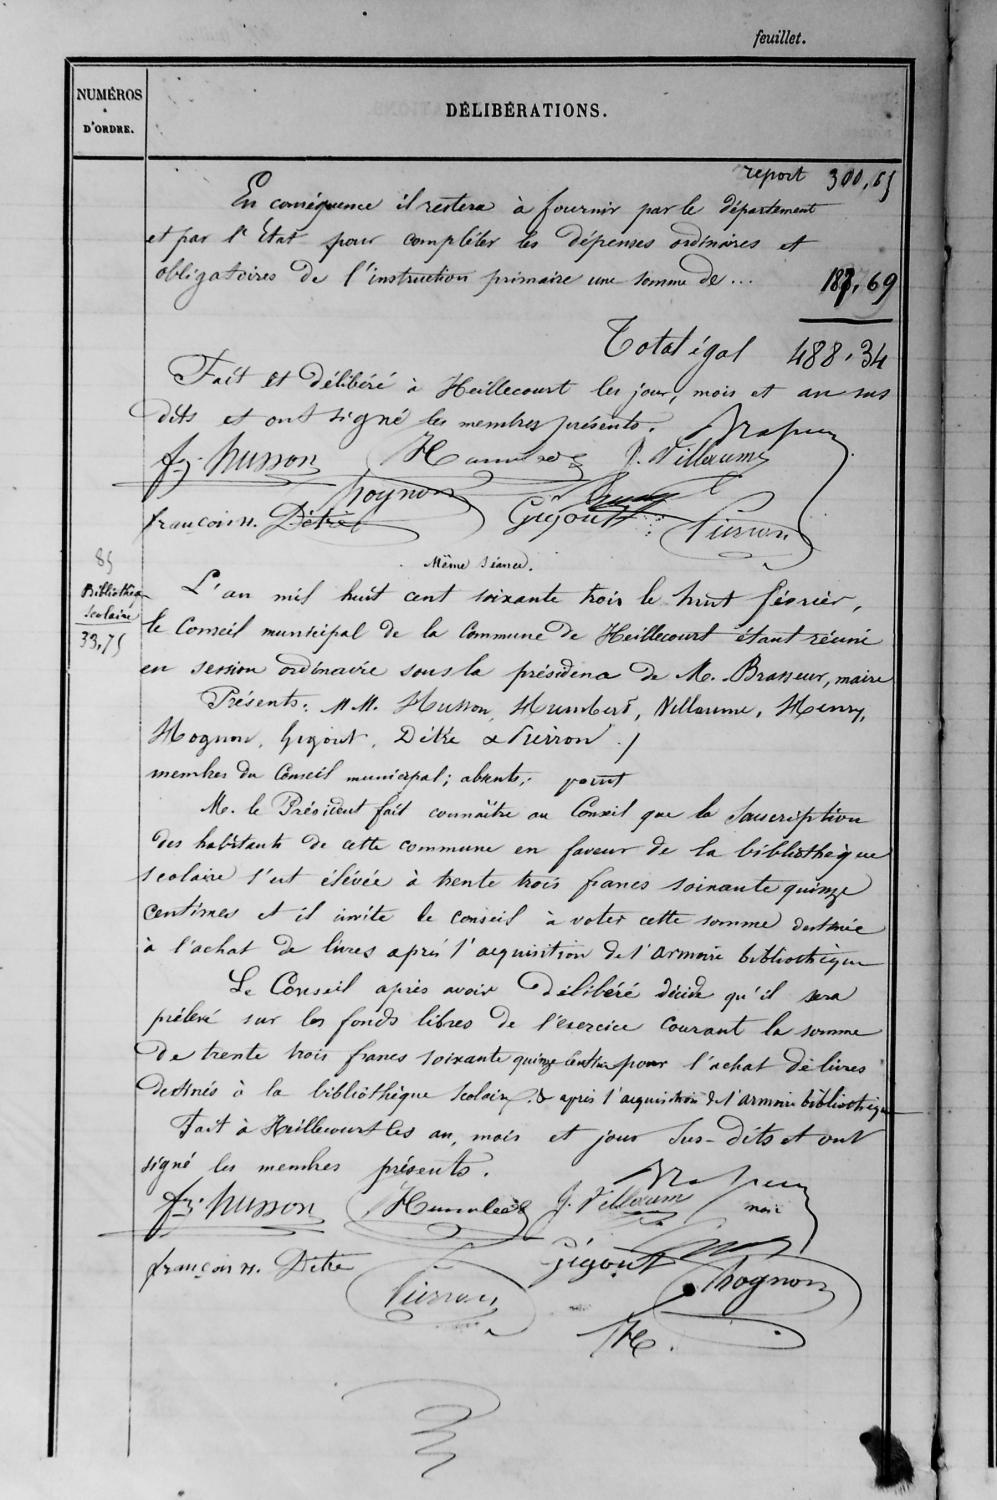 feuillet.
NUMÉROS
D'ORDRE.
DÉLIBÉRATIONS.
report 300,65
En conséquence il restera à fournir par le département
et par l'État pour compléter les dépenses ordinaires et
obligatoires de l'instruction primaire une somme de... 187,69
Total égal 488,34
Fait et délibéré à Heillecourt les jour, mois et an sus
dits et ont signé les membres présents.
fz. husson Humbert J. Villaume
hognon
françois n. Détré Gigout Pierron
Même séance.
85
Bibliothèq
scolaire
33,75
L'an mil huit cent soixante trois le huit février,
le Conseil municipal de la Commune de Heillecourt étant réuni
en session ordinaire sous la présidence de M. Brasseur, maire
Présents: MM. Husson, Humbert, Villaume, Henry,
Hognon, Gigout, Détré & Pierron /
membres du Conseil municipal; absents; point
M. le Président fait connaître au Conseil que la Souscription
des habitants de cette commune en faveur de la bibliothèque
scolaire s'est élévée à trente trois francs soixante quinze
centimes et il invite le conseil à voter cette somme destinée
à l'achat de livres après l'acquisition de l'armoire bibliothèque
Le Conseil après avoir délibéré décide qu'il sera
prélevé sur les fonds libres de l'exercice courant la somme
de trente trois francs soixante quinze centime pour l'achat de livres
destinés à la bibliothèque scolaire, & après l'acquisition de l'armoire bibliothèque
Fait à Heillecourt les an, mois et jour sus-dits et ont
signé les membres présents.
fz. husson Humbert J. Villaume maire
françois n. Détré Gigout
Pierron hognon
H.